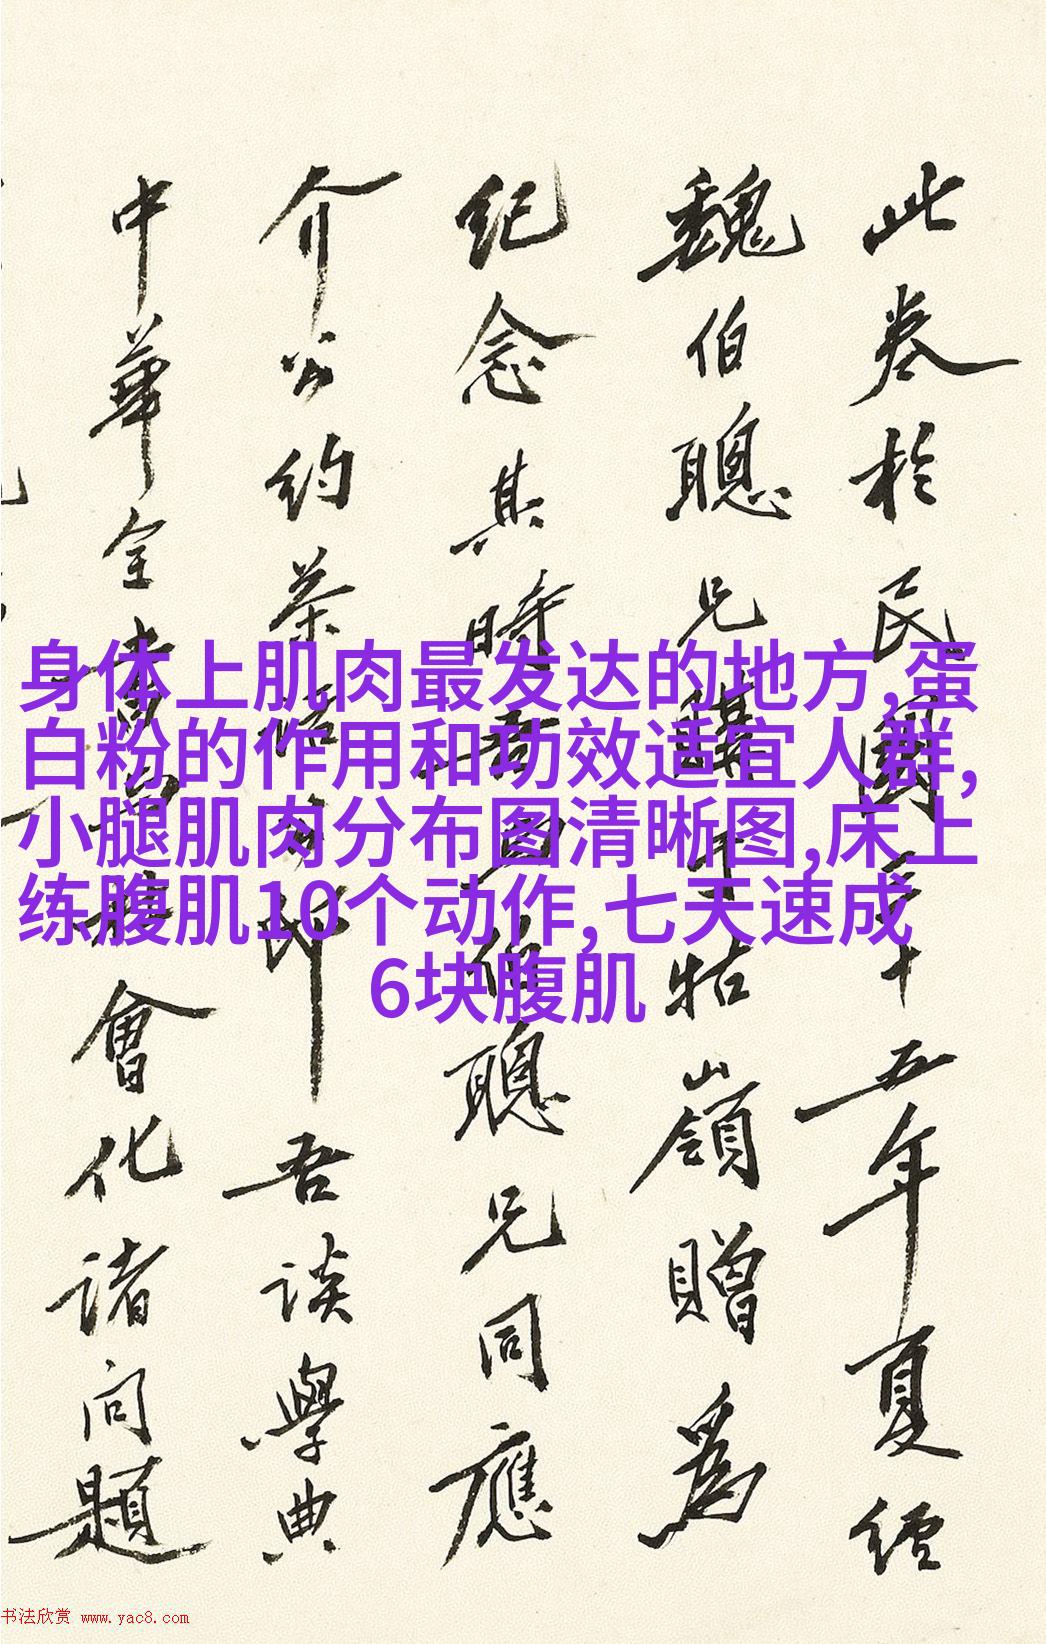 此卷於民國三十五年夏經
魏伯聰兄購于牯嶺贈為
紀念其時吾與伯聰兄同應
介公約茶晤吾談學典
中華全書會化諸問題
身体上肌肉最发达的地方,蛋
白粉的作用和功效适宜人群,
小腿肌肉分布图清晰图,床上
练腹肌10个动作, 七天速成
6块腹肌
书法欣赏 www.yac8.com